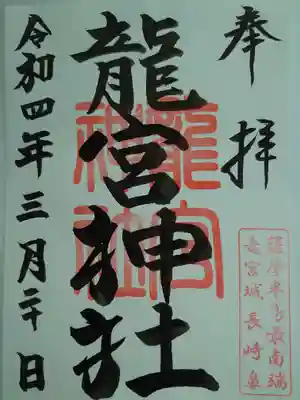 奉拝
薩摩半島最南端
竜宮城長崎鼻
龍宮神社
龍宮
神社
令和四年三月二十日